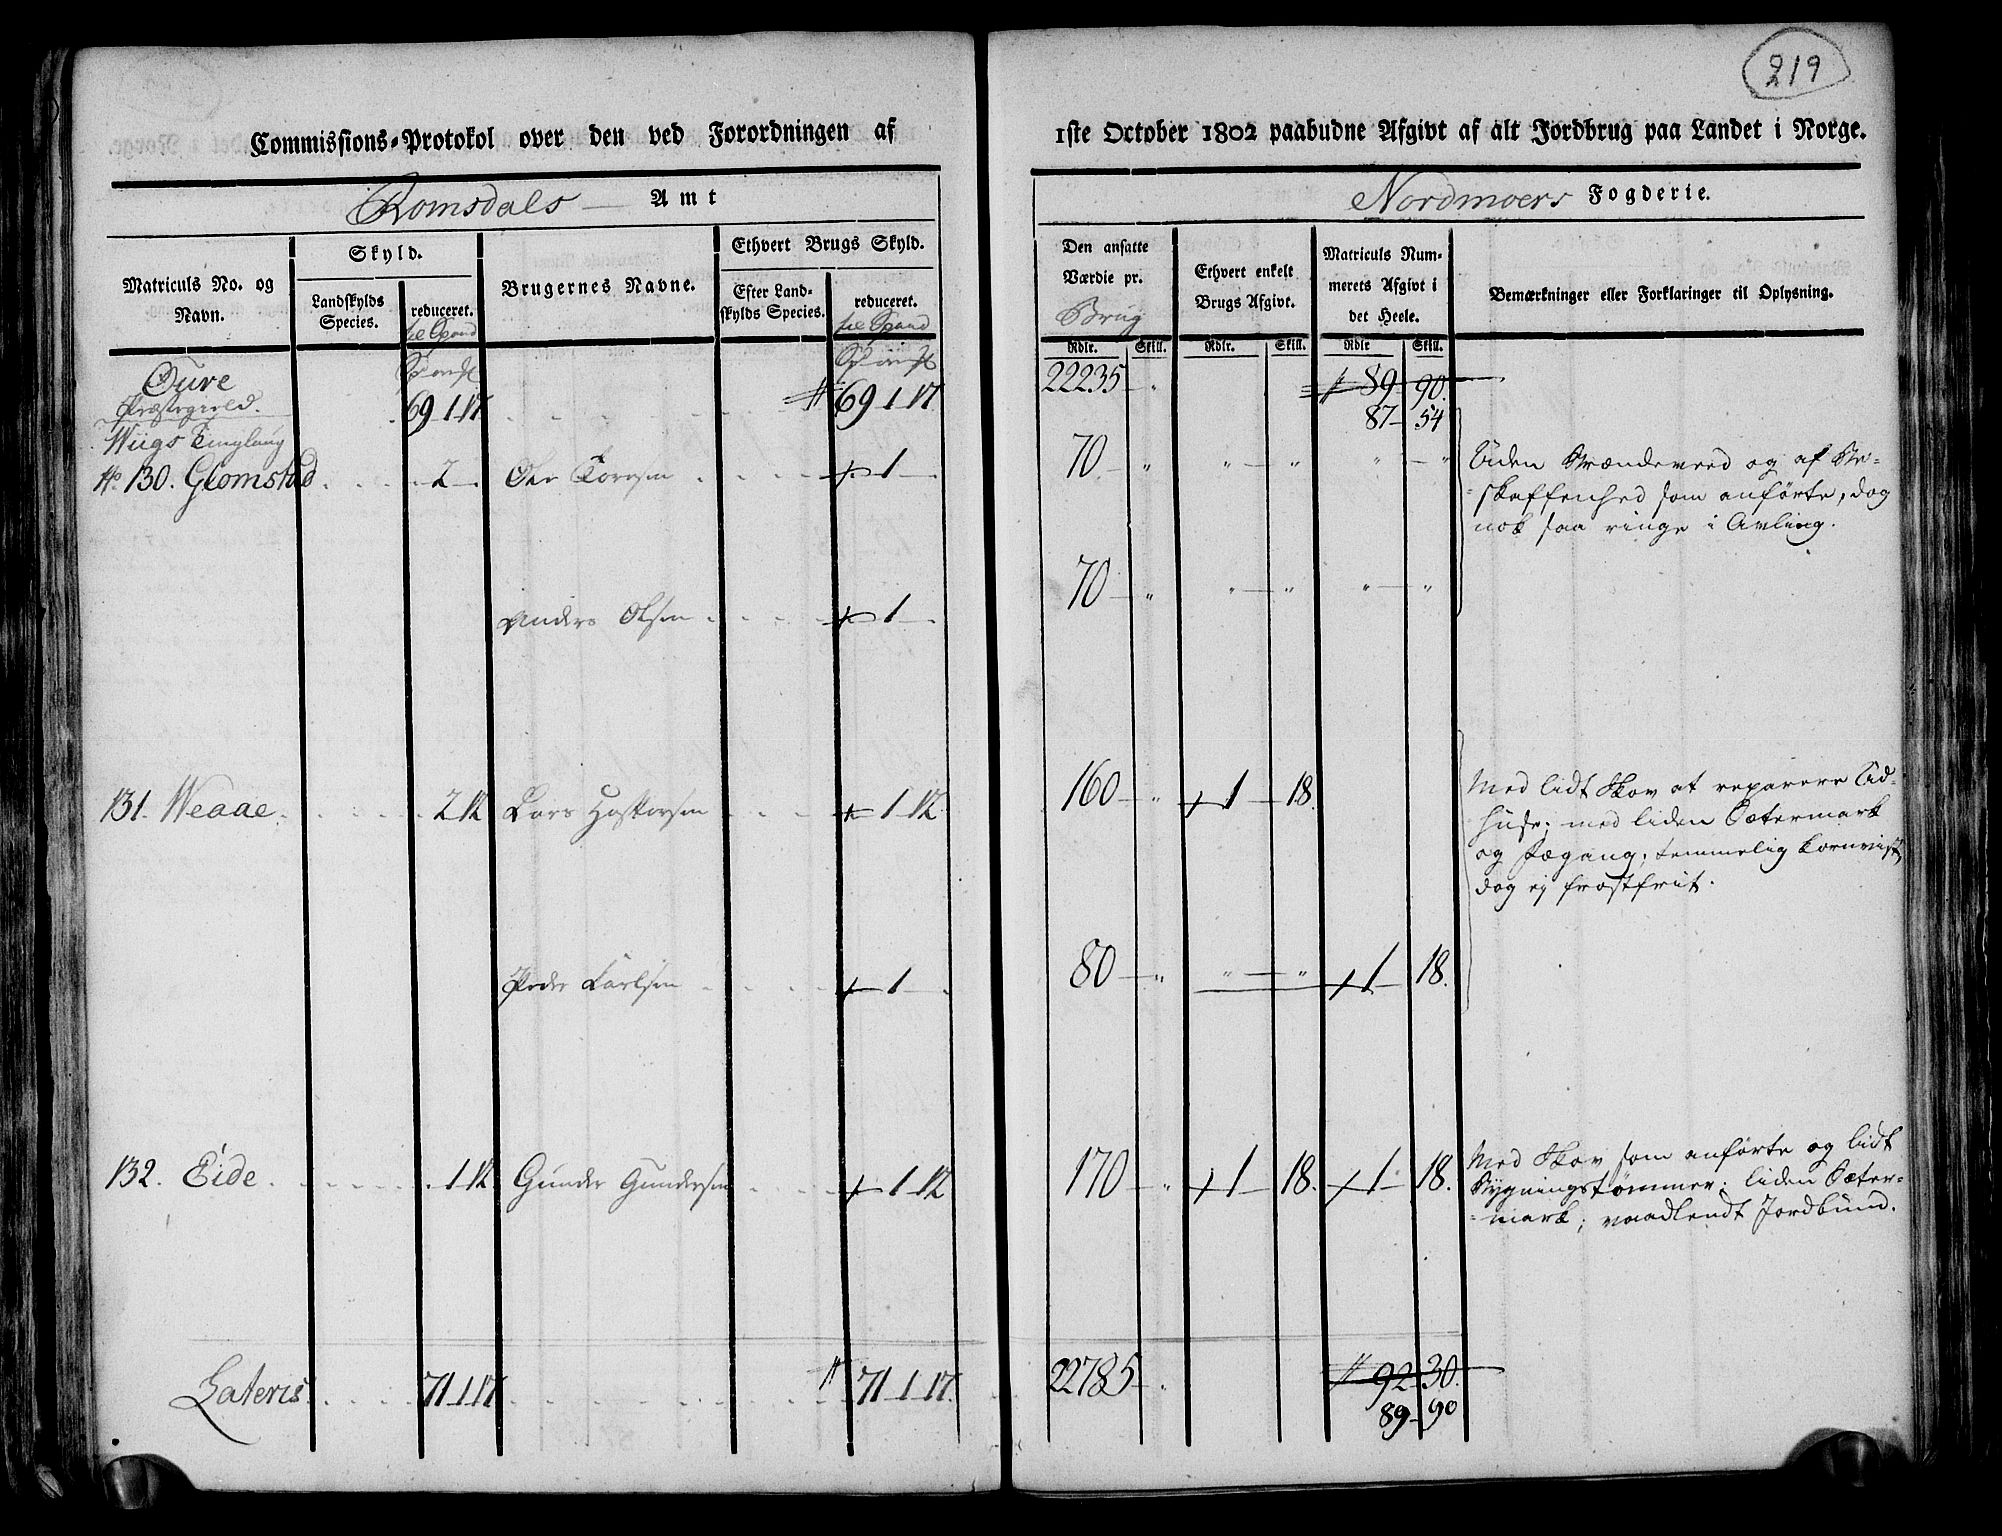 219
Commissions-Protokol over den ved Forordningen af 1ste October 1802 paabudne Afgivt af alt Jordbrug paa Landet i Norge.
Romsdals Amt
Nordmoers Fogderie.
Matriculs No. og Navn.
Skyld.
Landskylds Species.
reduceret.
til Spand
Brugernes Navne.
Ethvert Brugs Skyld.
Efter Landskylds Species.
reduceret.
til Spand
Den ansatte Værdie pr.
Brug
Ethvert enkelt Brugs Afgivt.
Matriculs Nummerets Afgivt i det Heele.
Bemærkninger eller Forklaringer til Oplysning.
Rdlr. Skill. Rdlr. Skill. Rdlr Skill.
Øure
Præstegield.
69 1 17 69 1 17 22235 " 89 90
87 54
Wiigs Tinglaug
No 130. Glomstad 2 Ole Torresen 1 70 " " " " "
Uden Brændeved og af Be-
skaffenhed som anførte, dog
nok saa ringe i Avling.
Anders Olsen 1 70 " " " " "
131. Weaae 2 12 Lars 1 12 160 " 1 18.
Med lidt Skov at reparere Ud-
huse; med liden Sætermark
og Fægang; temmelig kornvist,
dog ej frostfrit.
Peder Carlsen 1 80 " " " 1 18.
132. Eide 1 12 Gunder Gundersen 1 12 170 " 1 18. 1 18.
Med Skov som anførte og lidt
Bygningstømmer; liden Sæter-
mark; vaadlendt Jordbund.
Lateris 71 1 17 71 1 17. 22785 " 92 30.
89 90